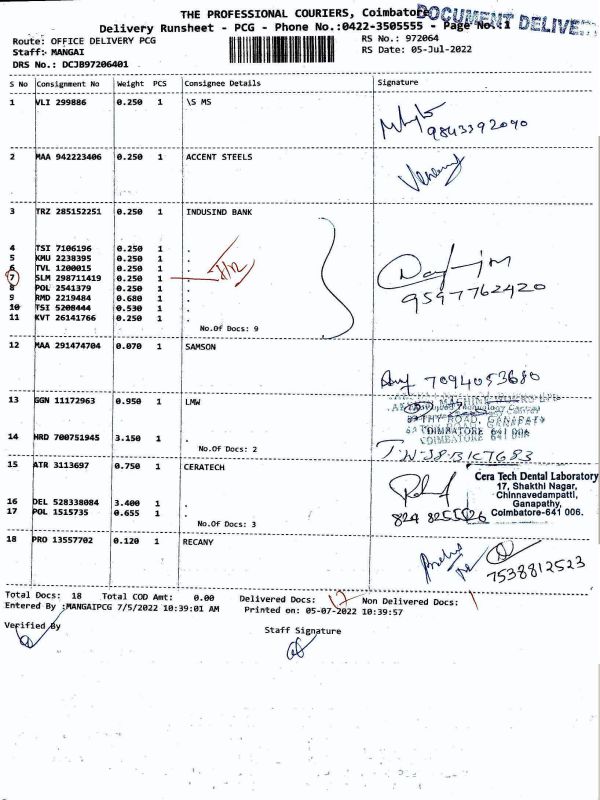 THE PROFESSIONAL COURIERS, Coimbatore
DOCUMENT DELIVE
Delivery Runsheet - PCG - Phone No.:0422-3505555 - Page No.:1
Route: OFFICE DELIVERY PCG
RS No.: 972064
Staff: MANGAI
RS Date: 05-Jul-2022
DRS No.: DCJB97206401
S No Consignment No Weight PCS Consignee Details Signature
1 VLI 299886 0.250 1 \S MS
9843392040
2 MAA 942223406 0.250 1 ACCENT STEELS
3 TRZ 285152251 0.250 1 INDUSIND BANK
4 TSI 7106196 0.250 1 .
5 KMU 2238395 0.250 1 .
6 TVL 1200015 0.250 1 .
7 SLM 298711419 0.250 1 .
8 POL 2541379 0.250 1 .
9 RMD 2219484 0.680 1 .
10 TSI 5208444 0.530 1 .
11 KVT 26141766 0.250 1 .
9597762420
No.Of Docs: 9
12 MAA 291474704 0.070 1 SAMSON
7094053680
13 GGN 11172963 0.950 1 LMW
COIMBATORE 641 006
14 HRD 700751945 3.150 1 .
No.Of Docs: 2
15 ATR 3113697 0.750 1 CERATECH
Cera Tech Dental Laboratory
17, Shakthi Nagar,
Chinnavedampatti,
Ganapathy,
Coimbatore-641 006.
16 DEL 528338084 3.400 1 .
17 POL 1515735 0.655 1 .
No.Of Docs: 3
18 PRO 13557702 0.120 1 RECANY
7538812523
Total Docs: 18 Total COD Amt: 0.00 Delivered Docs: 17 Non Delivered Docs: 1
Entered By :MANGAIPCG 7/5/2022 10:39:01 AM Printed on: 05-07-2022 10:39:57
Verified By
Staff Signature